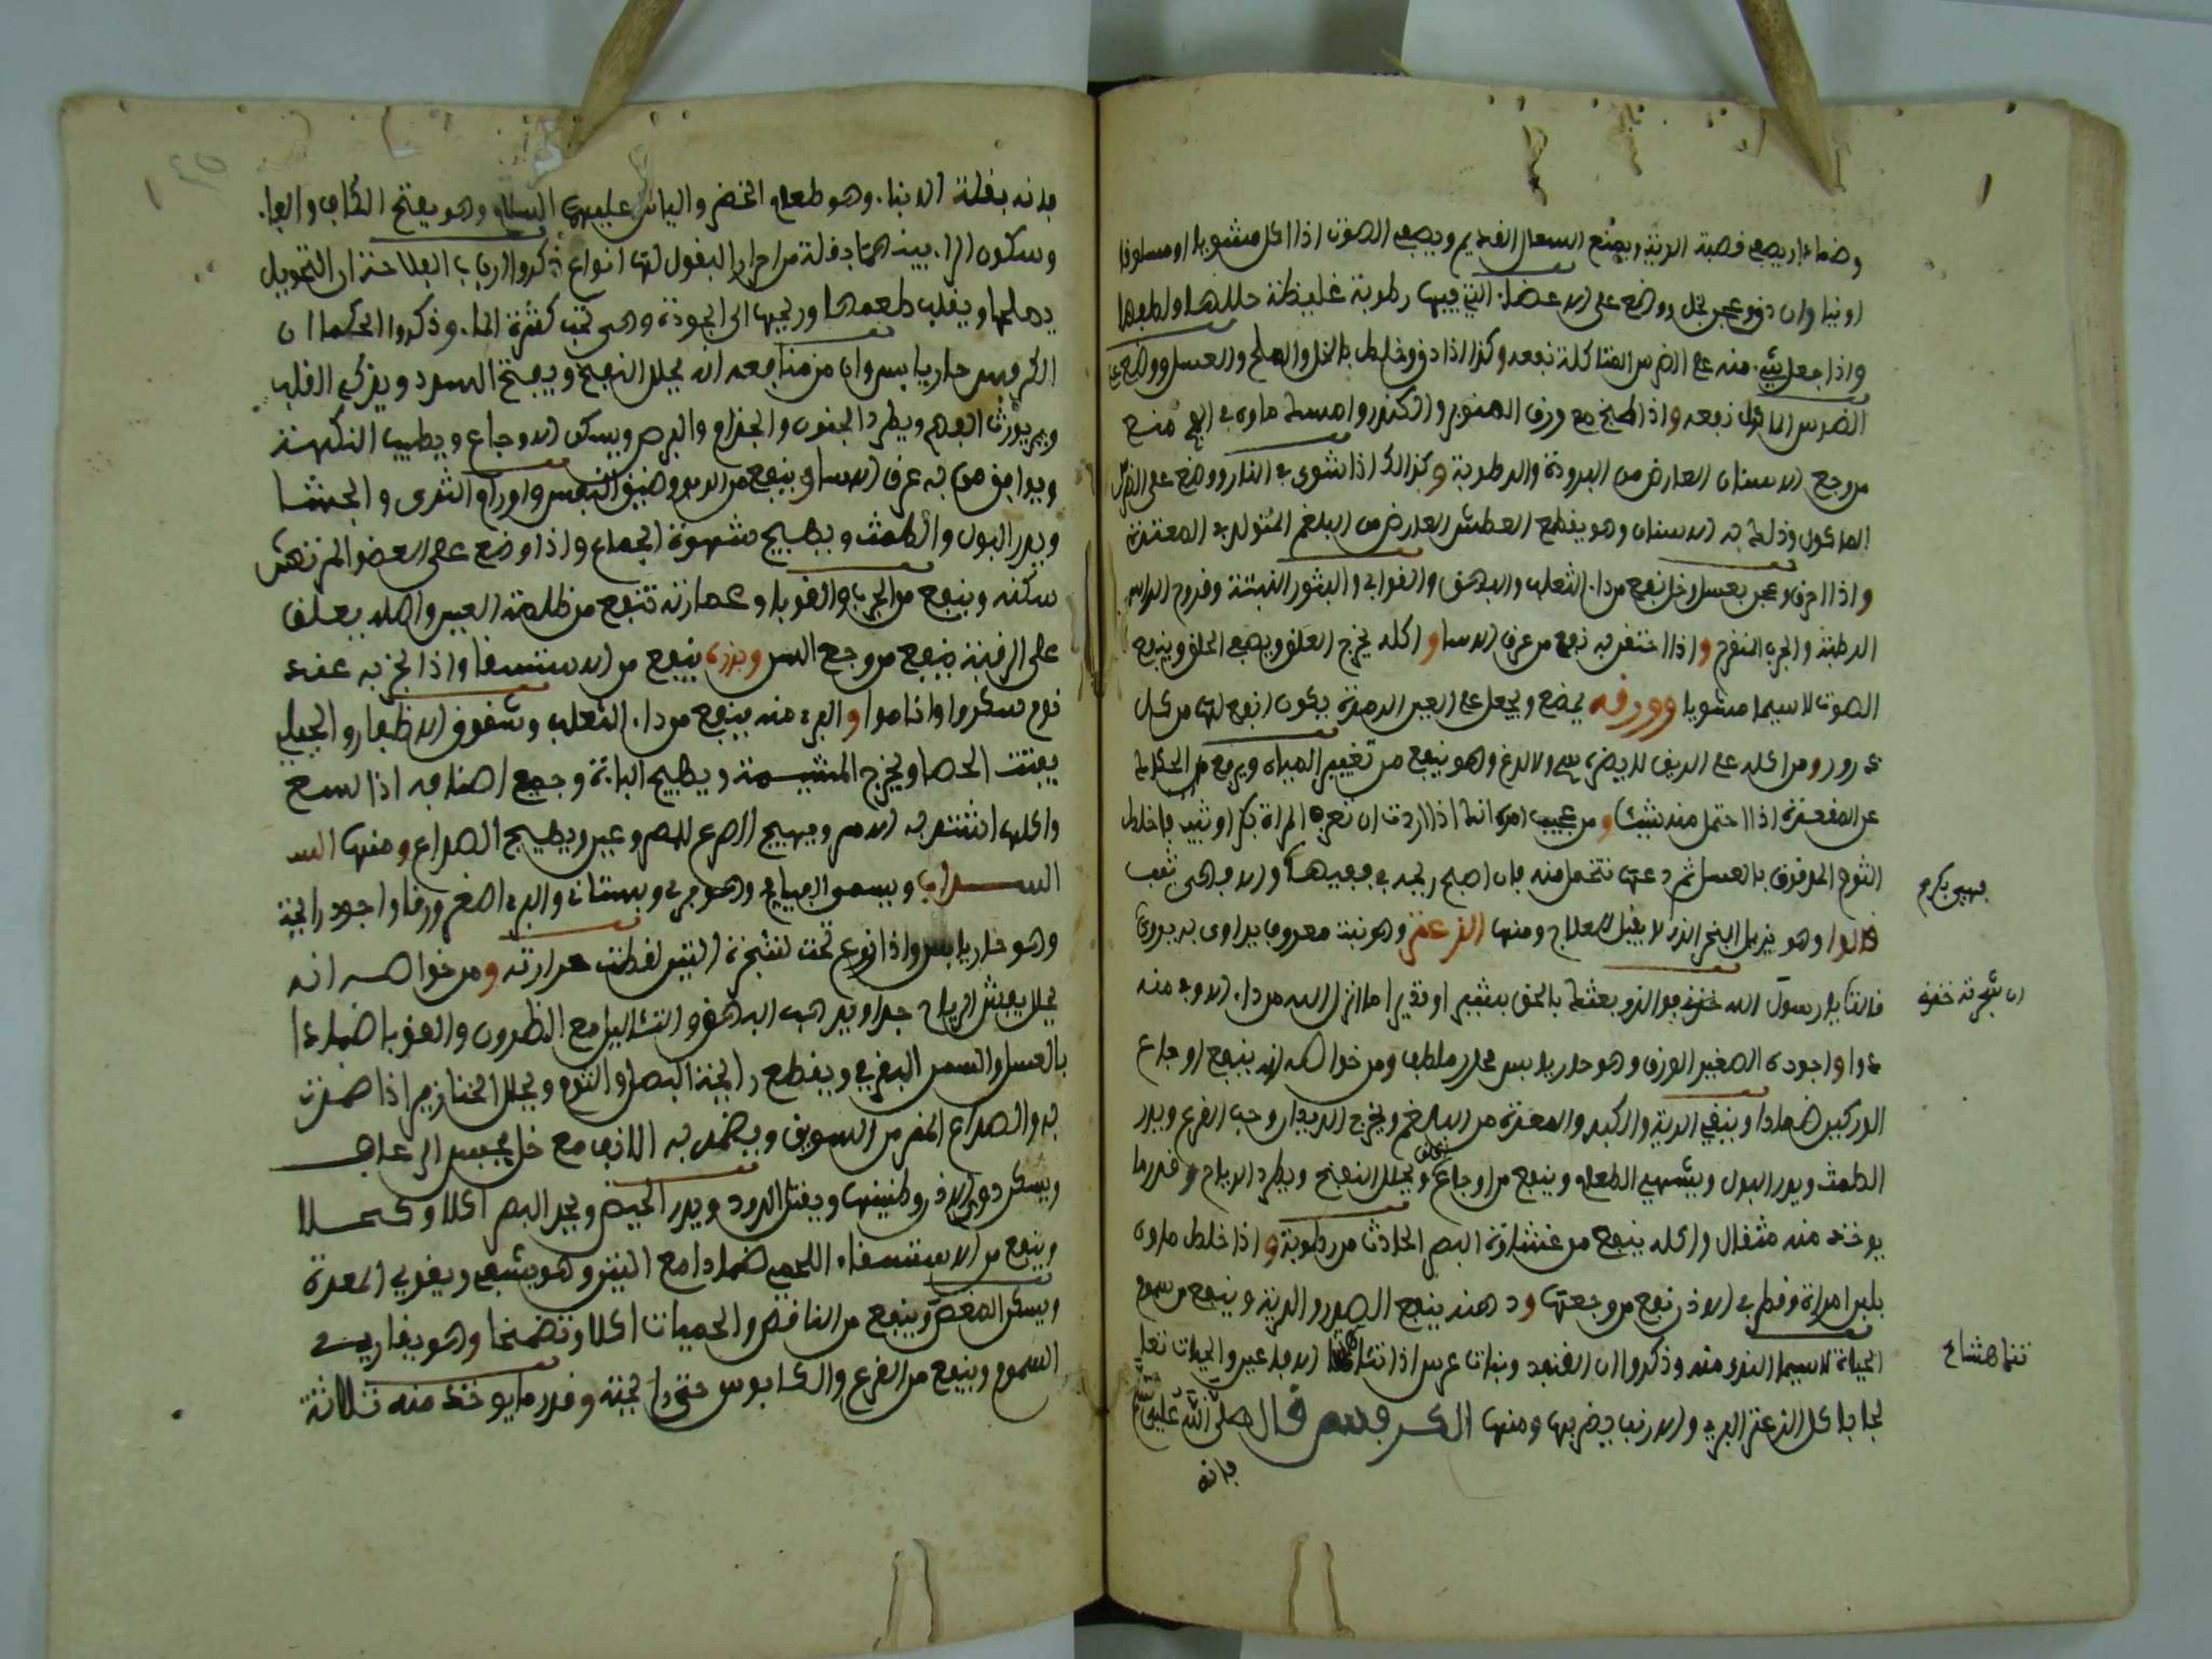 وضمادا ويصفي قصبة الرية وينفع السعال القديم ويصفي الصوت اذا اكل مشويا او مسلوقا
او نيا وان دق وعجن بخل ووضع على الاعضاء التي فيها رطوبة غليظة حللها ولطفها
واذا جعل شيء منه على الضرس المتاكلة نفعه وكذا اذا دق وخلط بالخل والملح والعسل ووضع على
الضرس الماكول نفعه واذا طبخ مع ورق الصنوبر والكندر وامسك ماؤه في الفم منع
من وجع الاسنان العارض من البرودة والرطوبة وكذلك اذا شوي في النار ووضع على الضرس
الماكول ودلك به الاسنان وهو يقطع العطش العارض من البلغم المتولد في المعدة
واذا احرق وعجن بعسل وخل نفع من داء الثعلب والبهق والقوابي والبثور النتنة وقروح الراس
الرطبة والجرب المتقرح واذا احتقن به نفع من عرق الانسا واكله يخرج العلق ويصفي الحلق وينفع
الصوت لاسيما مشويا وورقه يمضغ ويجعل على العين الرمدة يكون انفع لها من كل
ذرور ومن اكله على الريق لا يضره سم ولا لدغ وهو ينفع من تغيير المياه ويرفع
عن المقعدة اذا احتمل منه شيئا ومن عجيب امره انك اذا اردت ان تعرف المراة بكر او ثيب فاخلط
الثوم المدقوق بالعسل ثم دعها تتحمل منه فان اصبح ريحه في فمها والا فهي ثيب
فهي بكر م
قالوا وهو يزيل البخر الذي لا يقبل العلاج ومنها الزعتر وهو نبت معروف يداوى به يروى
قالت يا رسول الله خذني فوالذي بعثك بالحق بشيرا ونذيرا ما انزل الله من داء الا وفي منه
ان شجرته خذني
دواء واجوده الصغير الورق وهو حار يابس محلل ملطف ومن خواصه انه ينفع اوجاع
الوركين ضمادا وينقي الرية والكبد والمعدة من البلغم ويخرج الديدان وحب القرع ويدر
الطمث ويدر البول ويشهي الطعام وينفع من اوجاع ويحلل النفخ ويطرد الرياح وقدر ما
يوخذ منه مثقال واكله ينفع من غشاوة البصر الحادث من رطوبة واذا خلط ماؤه
بلبن امراة وقطر في الاذن نفع من وجعها ودهنه ينفع الصدر والرية وينفع من سموم
الحياة لاسيما البري منه وذكروا ان القنفد وبنات عرس اذا تناهشا الافاعي والحيات تعا
تناهشا ح
لجا باكل الزعتر البري والارنب يضر بها ومنها الكرفس قال صلى الله عليه وسلم
فانه
فانه بقلة الانبياء وهو طعام الخضر والياس عليهما السلام وهو بفتح الكاف والفاء
وسكون الراء بينهما بقلة من احرار البقول لها انواع ذكروا ارباب الفلاحة ان التحويل
يصلحها ويقلب طعمها وريحها الى الجودة وهي تحب كثرة الماء وذكروا الحكما ان
الكرفس حار يابس وان من منافعه انه يحلل النفخ ويفتح السدد ويزكي القلب
ويورث الفهم ويطرد الجنون والجذام والبرص ويسكن الاوجاع ويطيب النكهة
ويداوى من به عرق الانسا وينفع من الربو وضيق النفس واورام الثدي والجشا
ويدر البول والطمث ويهيج شهوة الجماع واذا وضع على العضو المرتهش
سكنه وينفع من الجرب والقوبا وعصارته تنفع من ظلمة العين واصله يعلق
على الرقبة ينفع من وجع السن وبزره ينفع من الاستسقا واذا بخر به عند
قوم سكروا وناموا والبري منه ينفع من داء الثعلب وشقوق الاظفار والجبلي
يفتت الحصا ويخرج المشيمة ويهيج الباءة وجميع اصنافه اذا لسع
واكلها انتشر به الامر ويهيج الصرع للمصروعين ويهيج الصداع ومنها الس
الســذاب ويسمى الفيجل وهو بري وبستاني والبري اصغر ورقا واجود رايحة
وهو حار يابس واذا زرع تحت شجرة التين لقطت حرارته ومن خواصه انه
يحلل يفش الرياح جدا ويذهب البهق والتئاليل مع النطرون والقوبا ضمادا
بالعسل والسمن البقري ويقطع رايحة البصل والثوم ويحلل الخنازير اذا ضمدت
به والصداع المزمن مع السويق ويضمد به الانف مع خل يحبس الرعاف
ويسكن دوي الاذن وطنينها ويقتل الدود ويدر الحيض ويحد البصر اكلا وكحـلا
وينفع من الاستسقاء اللحمي ضمادا مع التين وهو يشهي ويقوي المعدة
ويسكن المغص وينفع من النافض والحميات اكلا وتضمخا وهو يقاوم
السموم وينفع من القرع والكابوس حتى رايحته وقدر ما يوخذ منه ثلاثة